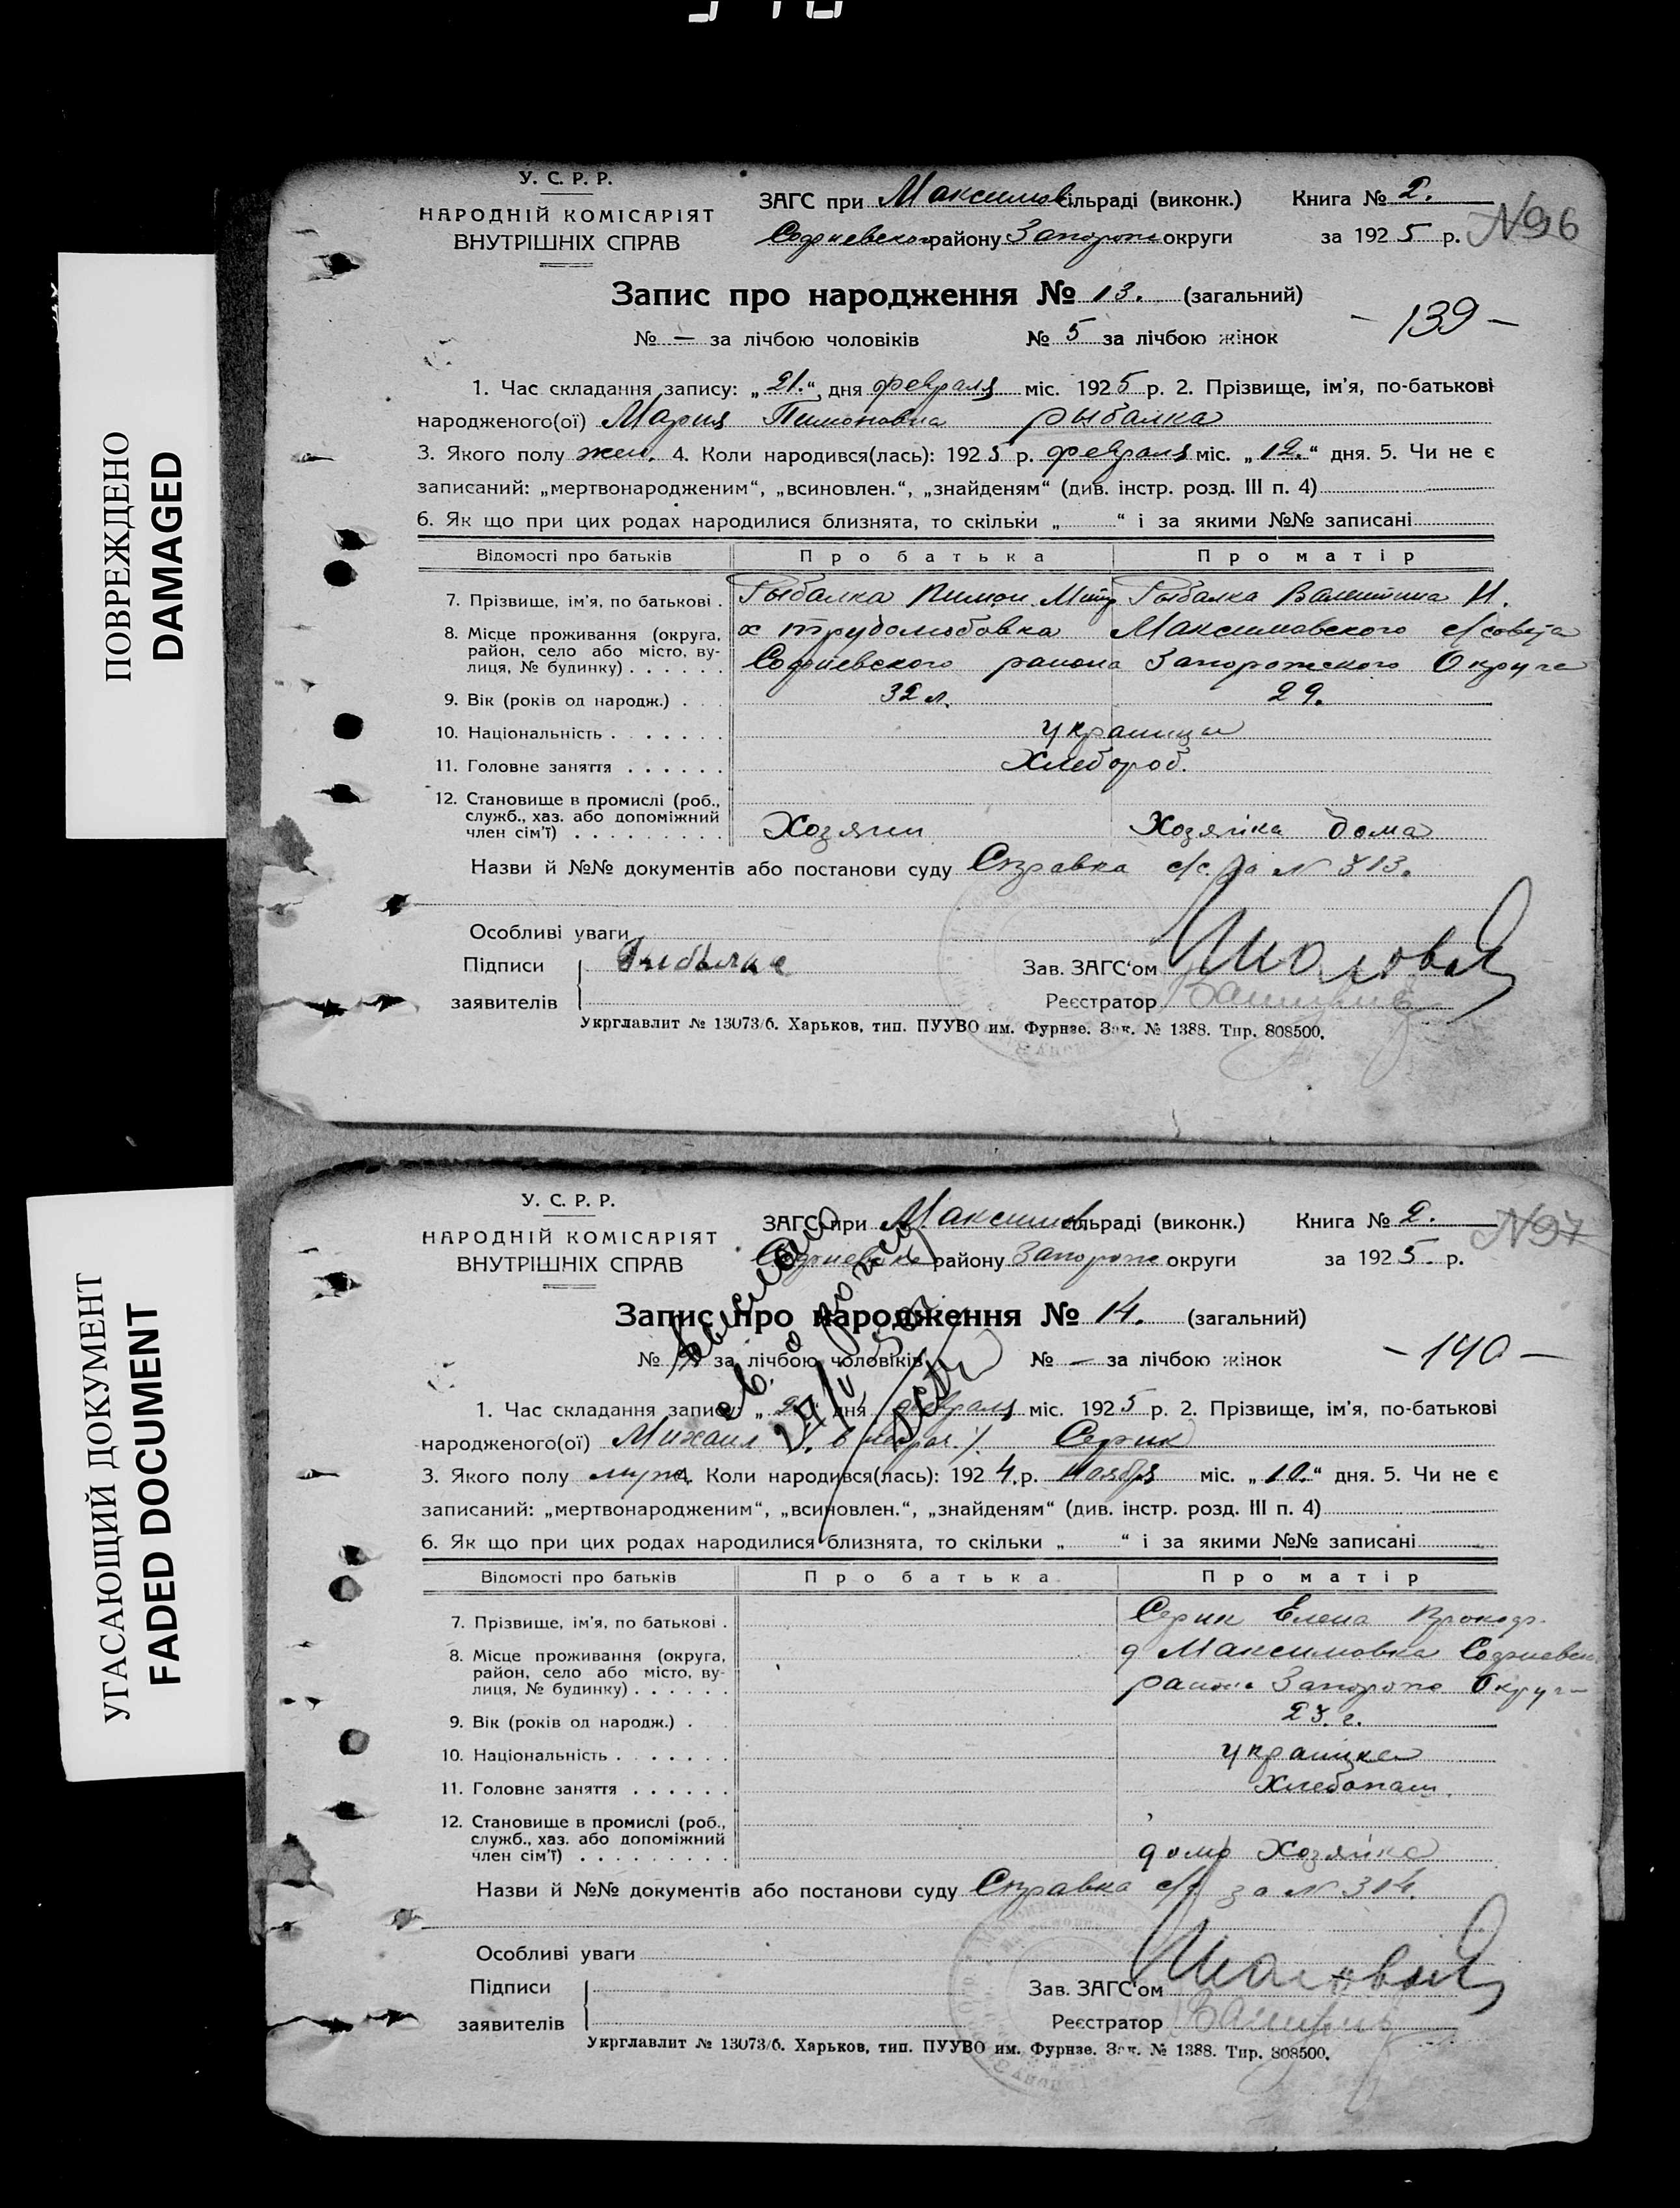 ПОВРЕЖДЕНО
DAMAGED
У. С. Р. Р.
НАРОДНІЙ КОМІСАРІЯТ
ВНУТРІШНІХ СПРАВ
ЗАГС при Максимов сільраді (виконк.)
Софиевского району Запорож округи
Книга № 2.
за 1925 р. N96
Запис про народження № 13. (загальний)
№ — за лічбою чоловіків № 5 за лічбою жінок
- 139 -
1. Час складання запису: „21.“ дня февраля міс. 1925 р. 2. Прізвище, ім'я, по-батькові
народженого(ої) Мария Пимоновна Рыбалка
3. Якого полу жен. 4. Коли народився(лась): 1925 р. февраля міс. „12.“ дня. 5. Чи не є
записаний: „мертвонародженим“, „всиновлен.“, „знайденям“ (див. інстр. розд. III п. 4)
6. Як що при цих родах народилися близнята, то скільки „ “ і за якими №№ записані
Відомості про батьків Про батька Про матір
7. Прізвище, ім'я, по батькові . Рыбалка Пимон Митр Рыбалка Валентина И.
8. Місце проживання (округа, район, село або місто, вулиця, № будинку) . . . . . . х Трудолюбовка Максимовского с/совета
Софиевского района Запорожского Округа
9. Вік (років од народж.) . . 32 л. 29.
10. Національність . . . . . . . украинцы
11. Головне заняття . . . . . . Хлебороб.
12. Становище в промислі (роб., служб., хаз. або допоміжний член сім'ї) . . . . . . . . . Хозяин Хозяйка дома
Назви й №№ документів або постанови суду Справка с/с. за N 313.
Особливі уваги
Підписи Рибалка Зав. ЗАГС'ом
заявителів Реєстратор
Укрглавлит № 13073/б. Харьков, тип. ПУУВО им. Фурнзе. Зак. № 1388. Тир. 808500.
УГАСАЮЩИЙ ДОКУМЕНТ
FADED DOCUMENT
У. С. Р. Р.
НАРОДНІЙ КОМІСАРІЯТ
ВНУТРІШНІХ СПРАВ
ЗАГС при Максимов сільраді (виконк.)
Софиевско району Запорож округи
Книга № 2.
за 1925. р. N97
Запис про народження № 14. (загальний)
№ за лічбою чоловіків № — за лічбою жінок
- 140 -
1. Час складання запису: „ “ дня февраля міс. 1925 р. 2. Прізвище, ім'я, по-батькові
народженого(ої) Михаил Серик
3. Якого полу муж. 4. Коли народився(лась): 1924 р. Ноября міс. „10.“ дня. 5. Чи не є
записаний: „мертвонародженим“, „всиновлен.“, „знайденям“ (див. інстр. розд. III п. 4)
6. Як що при цих родах народилися близнята, то скільки „ “ і за якими №№ записані
Відомості про батьків Про батька Про матір
7. Прізвище, ім'я, по батькові . Серик Елена
8. Місце проживання (округа, район, село або місто, вулиця, № будинку) . . . . . . д Максимовка Софиевск
района Запорож Округ
9. Вік (років од народж.) . 23. г.
10. Національність . . . . . . . украинка
11. Головне заняття . . . . . . Хлебопаш.
12. Становище в промислі (роб., служб., хаз. або допоміжний член сім'ї) . . . . . . . . . дома Хозяйка
Назви й №№ документів або постанови суду Справка с/с. за N 314.
Особливі уваги
Підписи Зав. ЗАГС'ом
заявителів Реєстратор
Укрглавлит № 13073/б. Харьков, тип. ПУУВО им. Фурнзе. Зак. № 1388. Тир. 808500.